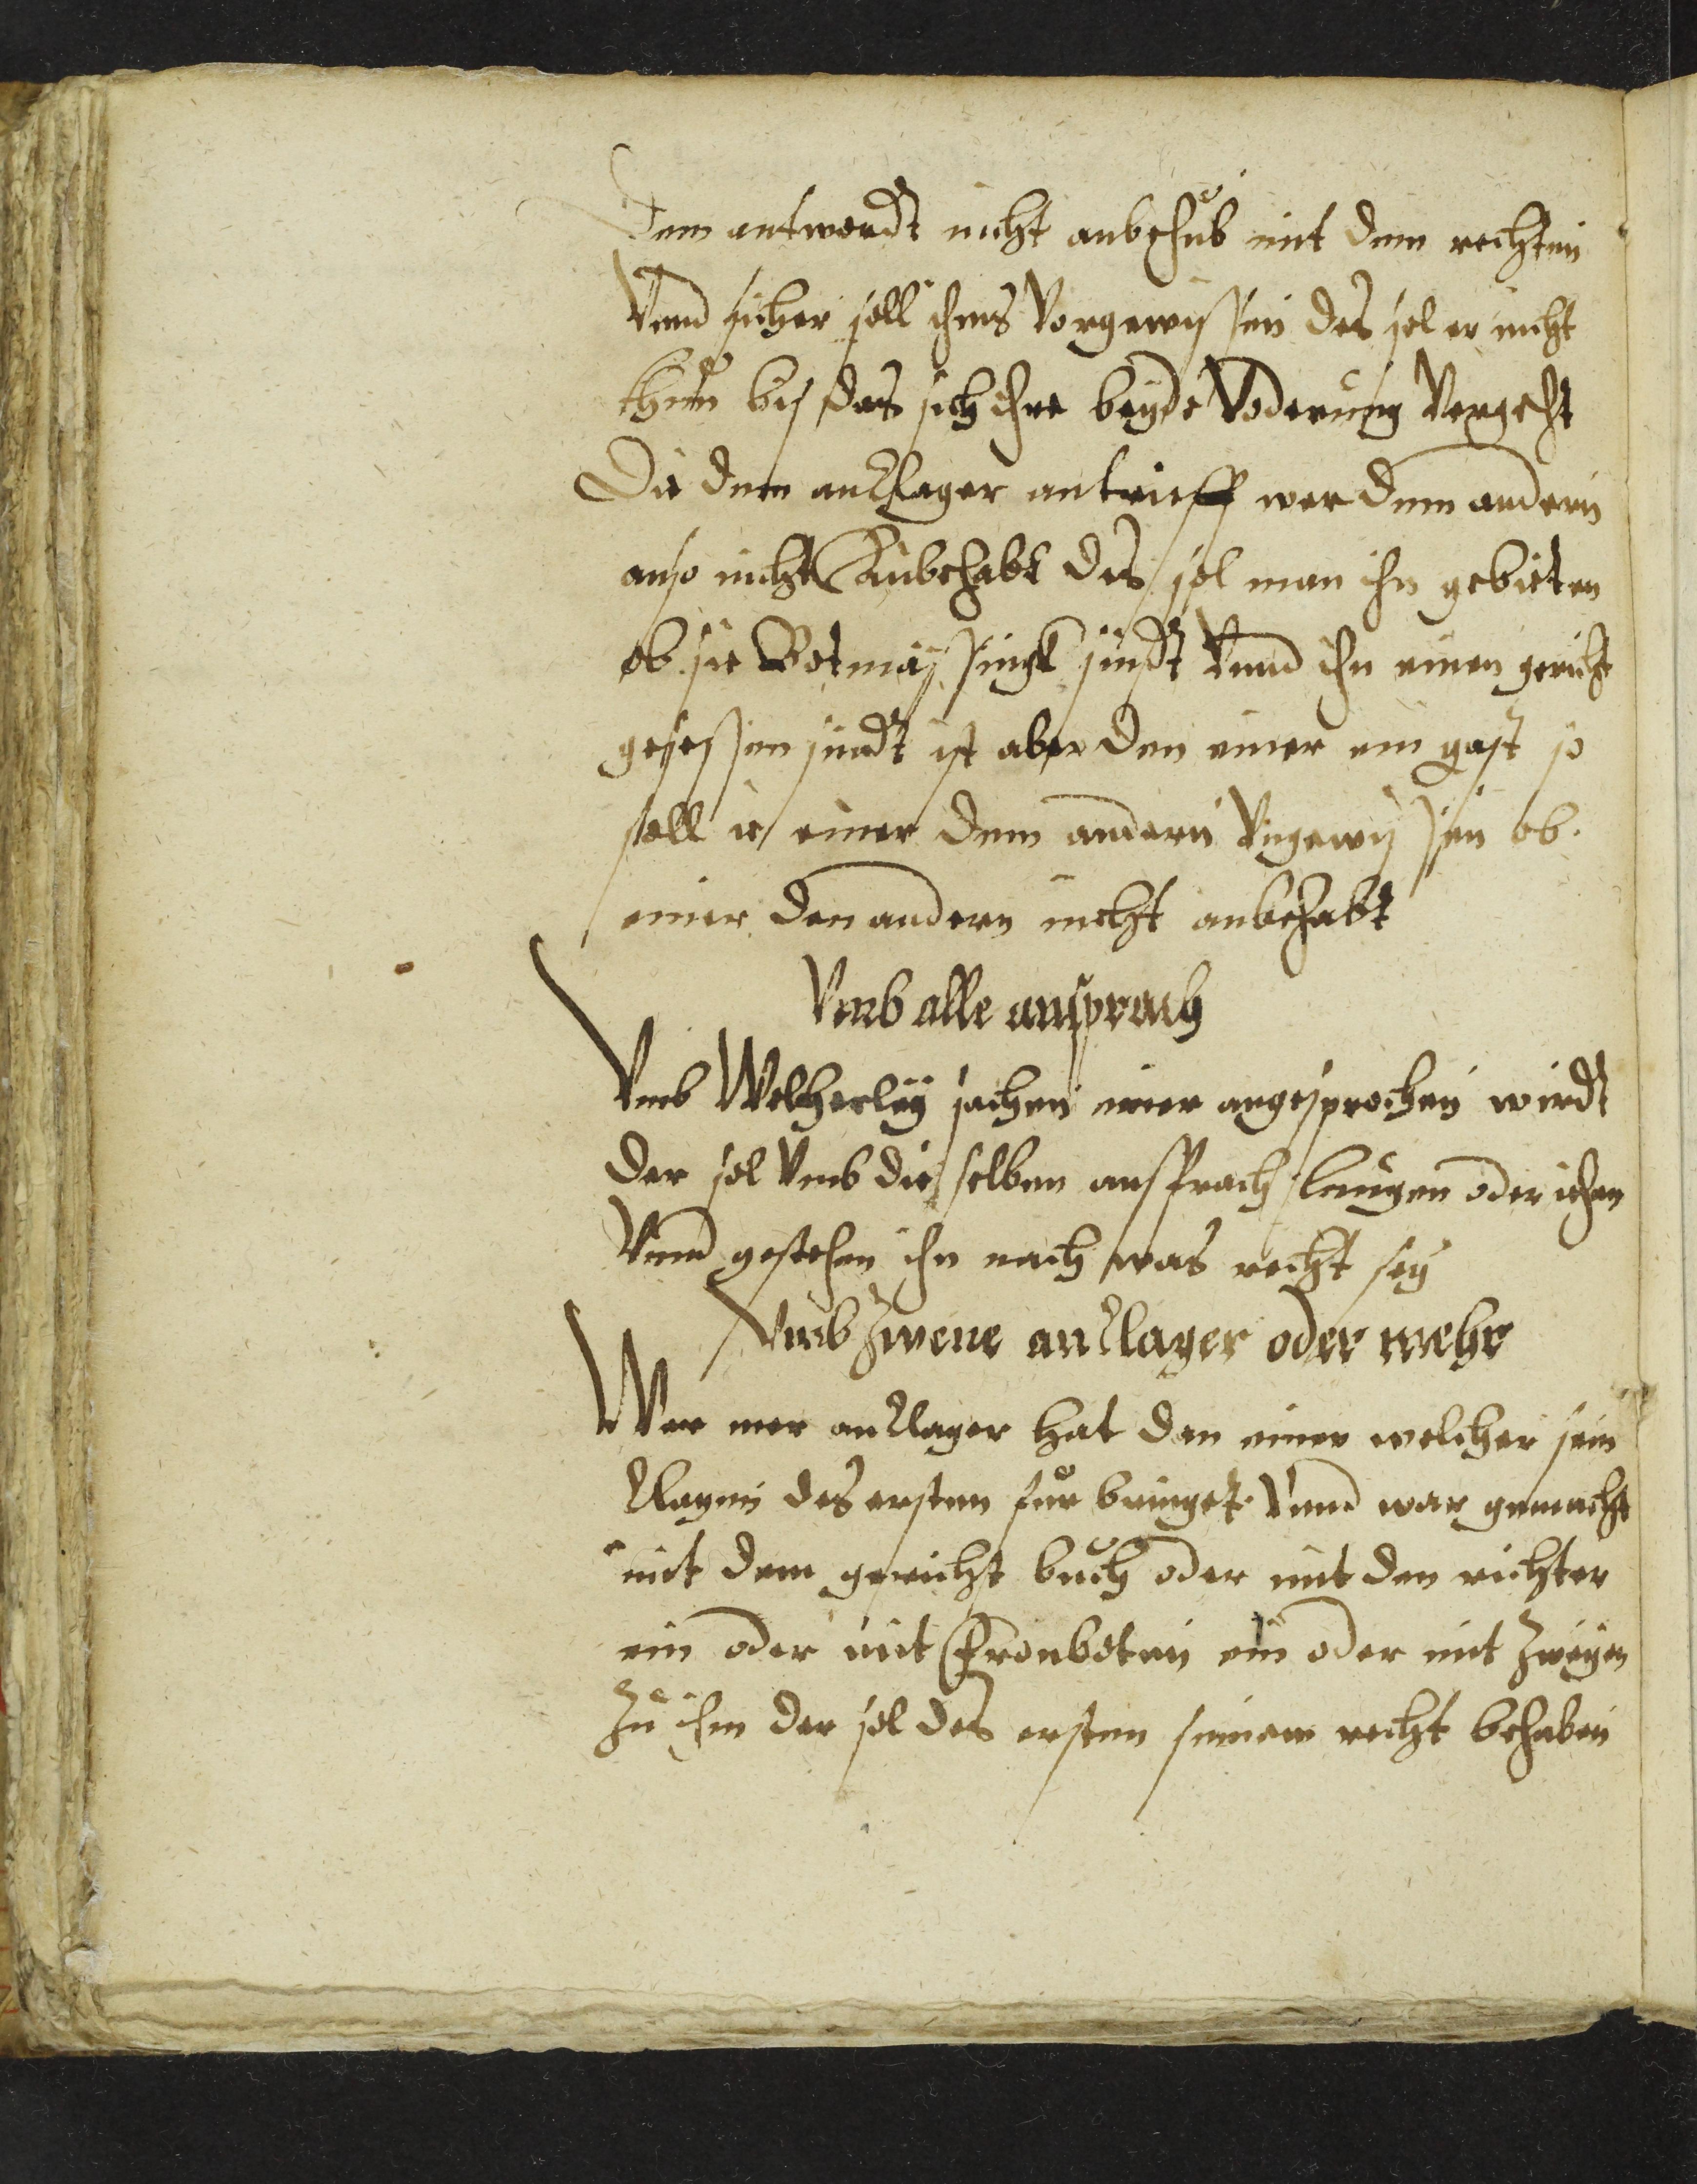 dem antwordt nicht anbehub mit dem rechten
Vnnd sicher soll ihms Vorgewissen des sol er nicht
thun bis das sich ihre beyde Voderung Vergeht
Die dem anklager antrieff wer dem andern
anso nicht anbehabt des sol man ihn gebieten
ob sie Botmässingk sindt Vnnd ihn einen gericht
gesessen sindt ist aber den einer ein gast so
soll ie einer dem andern Vergewissen ob
einer den andern nicht anbehabt
Vmb alle ansprach
Vmb Welcherley sachen einer angesprochen wirdt
der sol Vmb die selben ansprach leugen oder iehen
Vnnd gestehen ihn nach was recht sey
Vmb zwene anklager oder mehr
Wer mer anklager hat den einer welcher sein
klagen des ersten für bringet Vnnd war gemacht
mit dem gericht buch oder mit den richter
ein oder mit Fronboten ein oder mit zweyen
zu ihm der sol des ersten seinem recht behaben